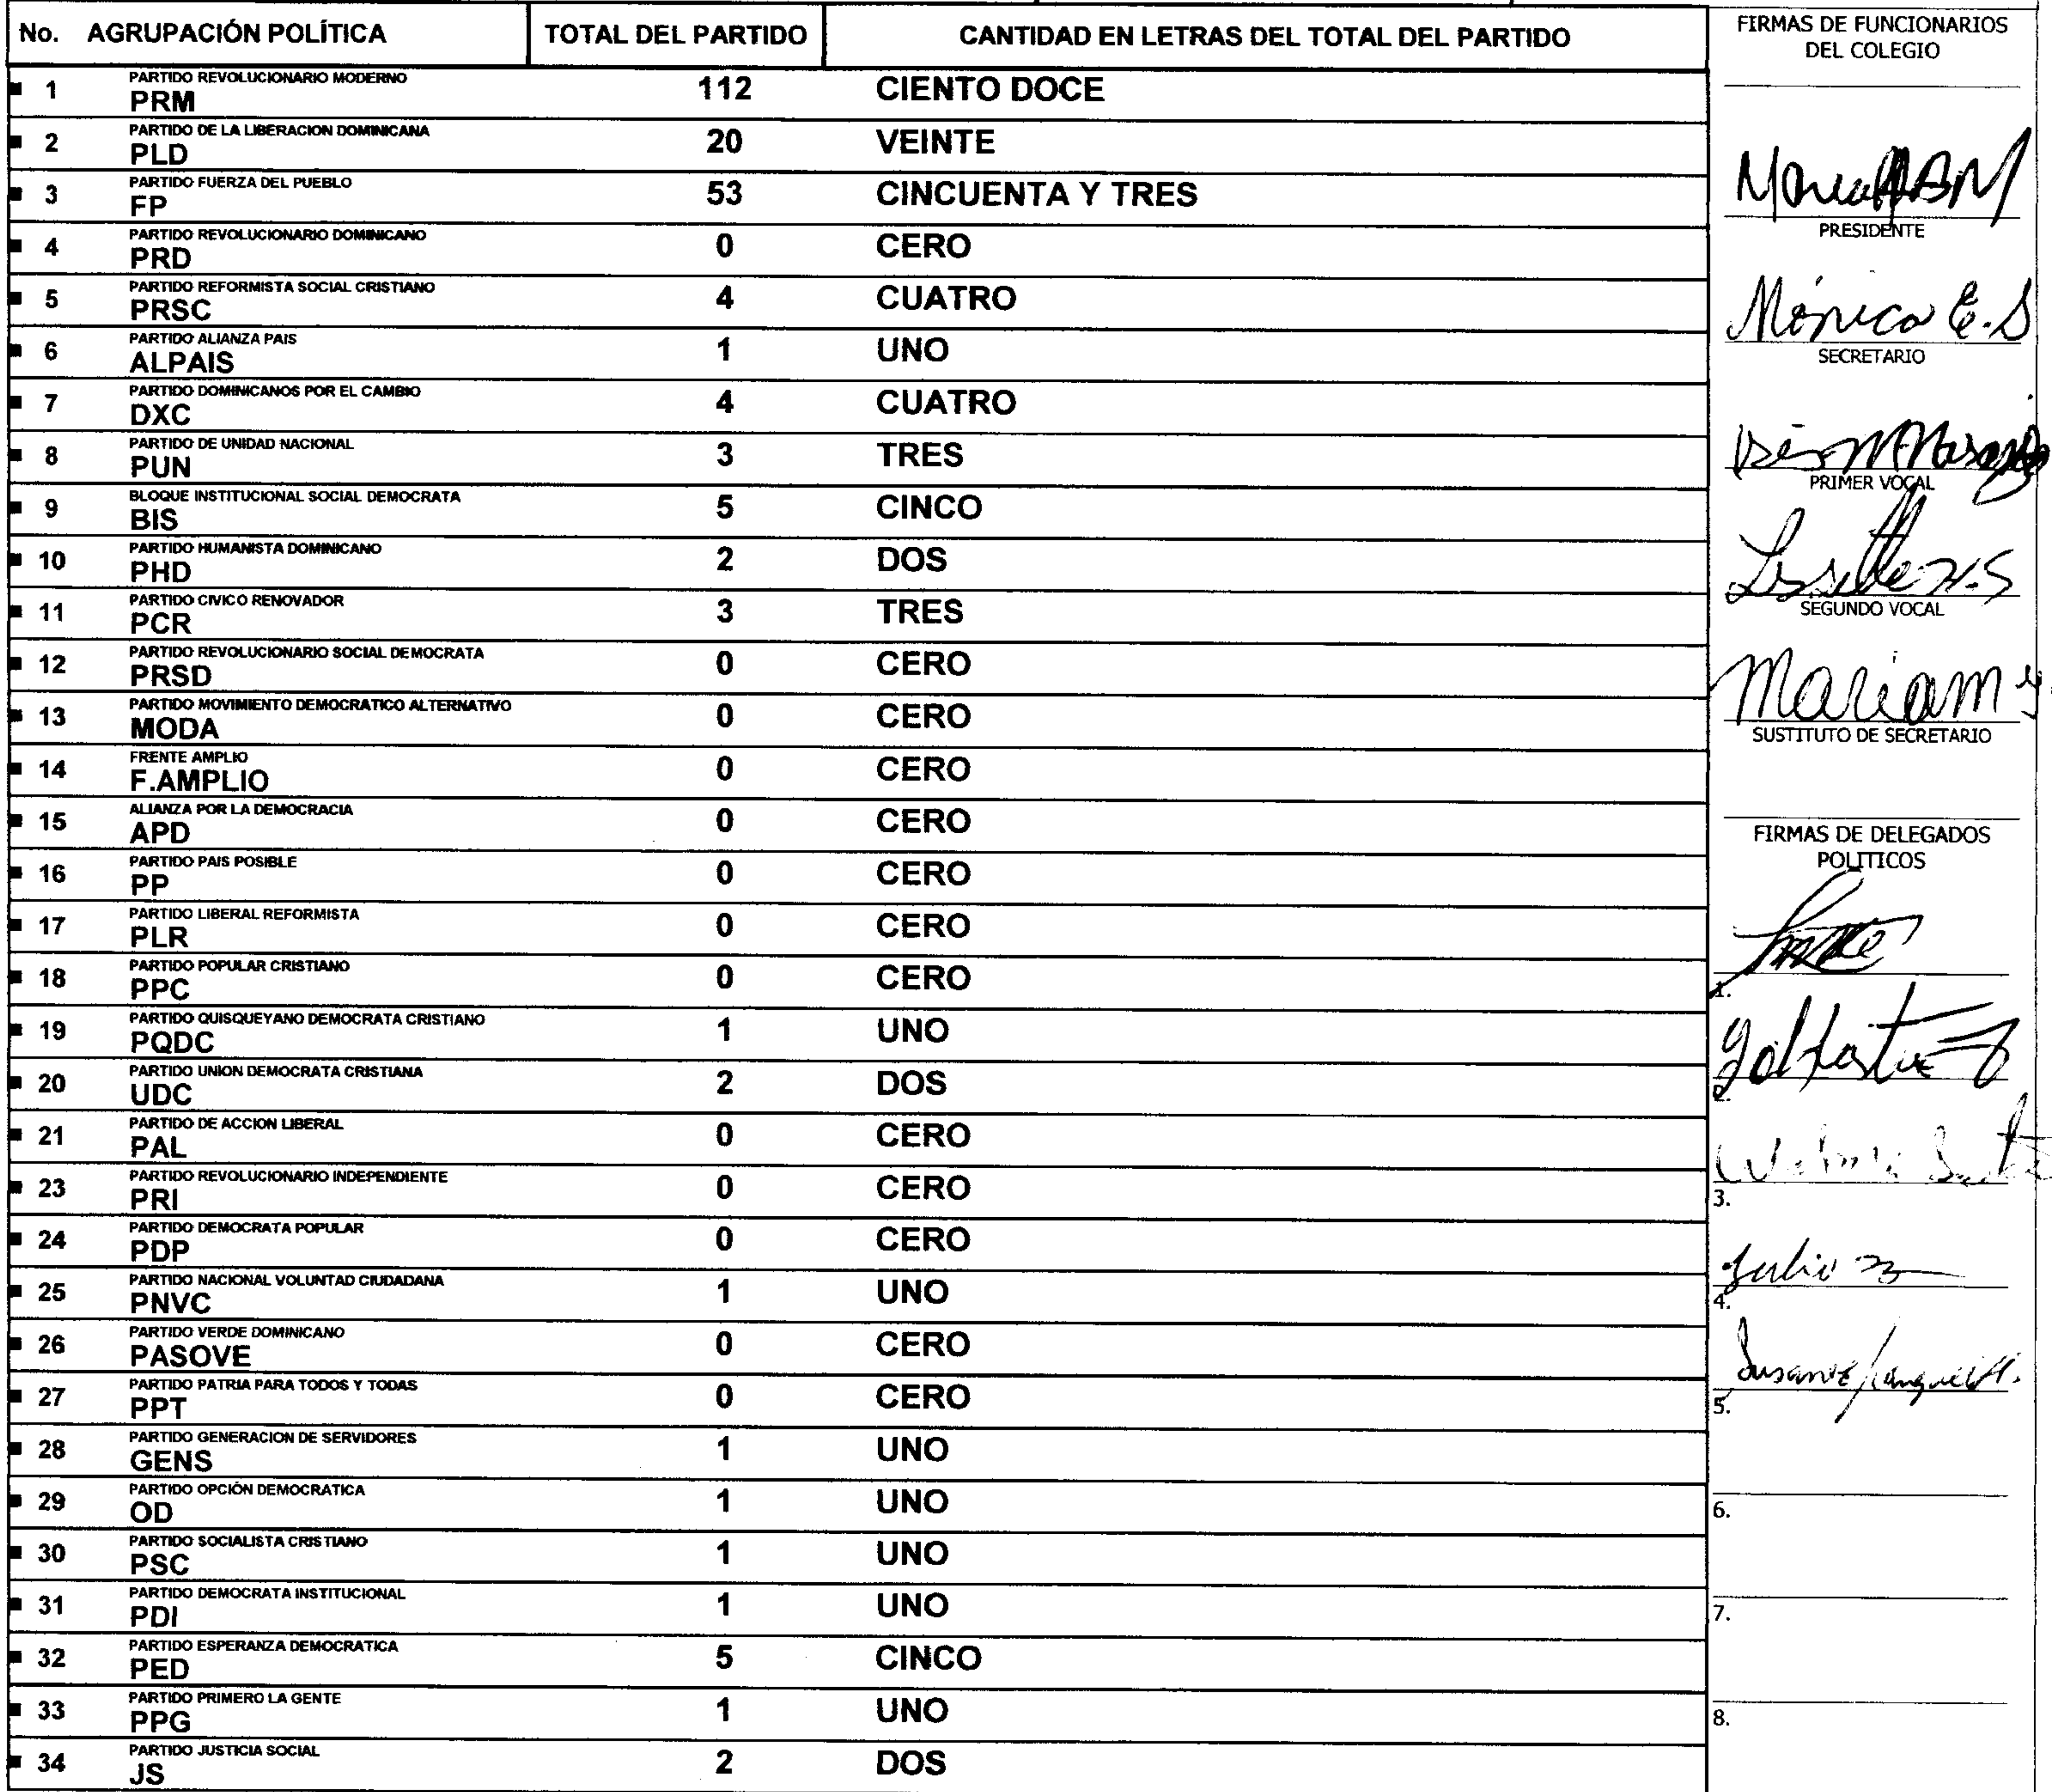 No. AGRUPACIÓN POLÍTICA TOTAL DEL PARTIDO CANTIDAD EN LETRAS DEL TOTAL DEL PARTIDO
1 PARTIDO REVOLUCIONARIO MODERNO
PRM 112 CIENTO DOCE
2 PARTIDO DE LA LIBERACION DOMINICANA
PLD 20 VEINTE
3 PARTIDO FUERZA DEL PUEBLO
FP 53 CINCUENTA Y TRES
4 PARTIDO REVOLUCIONARIO DOMINICANO
PRD 0 CERO
5 PARTIDO REFORMISTA SOCIAL CRISTIANO
PRSC 4 CUATRO
6 PARTIDO ALIANZA PAIS
ALPAIS 1 UNO
7 PARTIDO DOMINICANOS POR EL CAMBIO
DXC 4 CUATRO
8 PARTIDO DE UNIDAD NACIONAL
PUN 3 TRES
9 BLOQUE INSTITUCIONAL SOCIAL DEMOCRATA
BIS 5 CINCO
10 PARTIDO HUMANISTA DOMINICANO
PHD 2 DOS
11 PARTIDO CIVICO RENOVADOR
PCR 3 TRES
12 PARTIDO REVOLUCIONARIO SOCIAL DEMOCRATA
PRSD 0 CERO
13 PARTIDO MOVIMIENTO DEMOCRATICO ALTERNATIVO
MODA 0 CERO
14 FRENTE AMPLIO
F.AMPLIO 0 CERO
15 ALIANZA POR LA DEMOCRACIA
APD 0 CERO
16 PARTIDO PAIS POSIBLE
PP 0 CERO
17 PARTIDO LIBERAL REFORMISTA
PLR 0 CERO
18 PARTIDO POPULAR CRISTIANO
PPC 0 CERO
19 PARTIDO QUISQUEYANO DEMOCRATA CRISTIANO
PQDC 1 UNO
20 PARTIDO UNION DEMOCRATA CRISTIANA
UDC 2 DOS
21 PARTIDO DE ACCION LIBERAL
PAL 0 CERO
23 PARTIDO REVOLUCIONARIO INDEPENDIENTE
PRI 0 CERO
24 PARTIDO DEMOCRATA POPULAR
PDP 0 CERO
25 PARTIDO NACIONAL VOLUNTAD CIUDADANA
PNVC 1 UNO
26 PARTIDO VERDE DOMINICANO
PASOVE 0 CERO
27 PARTIDO PATRIA PARA TODOS Y TODAS
PPT 0 CERO
28 PARTIDO GENERACION DE SERVIDORES
GENS 1 UNO
29 PARTIDO OPCIÓN DEMOCRATICA
OD 1 UNO
30 PARTIDO SOCIALISTA CRISTIANO
PSC 1 UNO
31 PARTIDO DEMOCRATA INSTITUCIONAL
PDI 1 UNO
32 PARTIDO ESPERANZA DEMOCRATICA
PED 5 CINCO
33 PARTIDO PRIMERO LA GENTE
PPG 1 UNO
34 PARTIDO JUSTICIA SOCIAL
JS 2 DOS
FIRMAS DE FUNCIONARIOS
DEL COLEGIO
PRESIDENTE
Mónica E. S
SECRETARIO
PRIMER VOCAL
SEGUNDO VOCAL
Mariam
SUSTITUTO DE SECRETARIO
FIRMAS DE DELEGADOS
POLITICOS
1.
2.
3.
Julio
4.
5.
6.
7.
8.